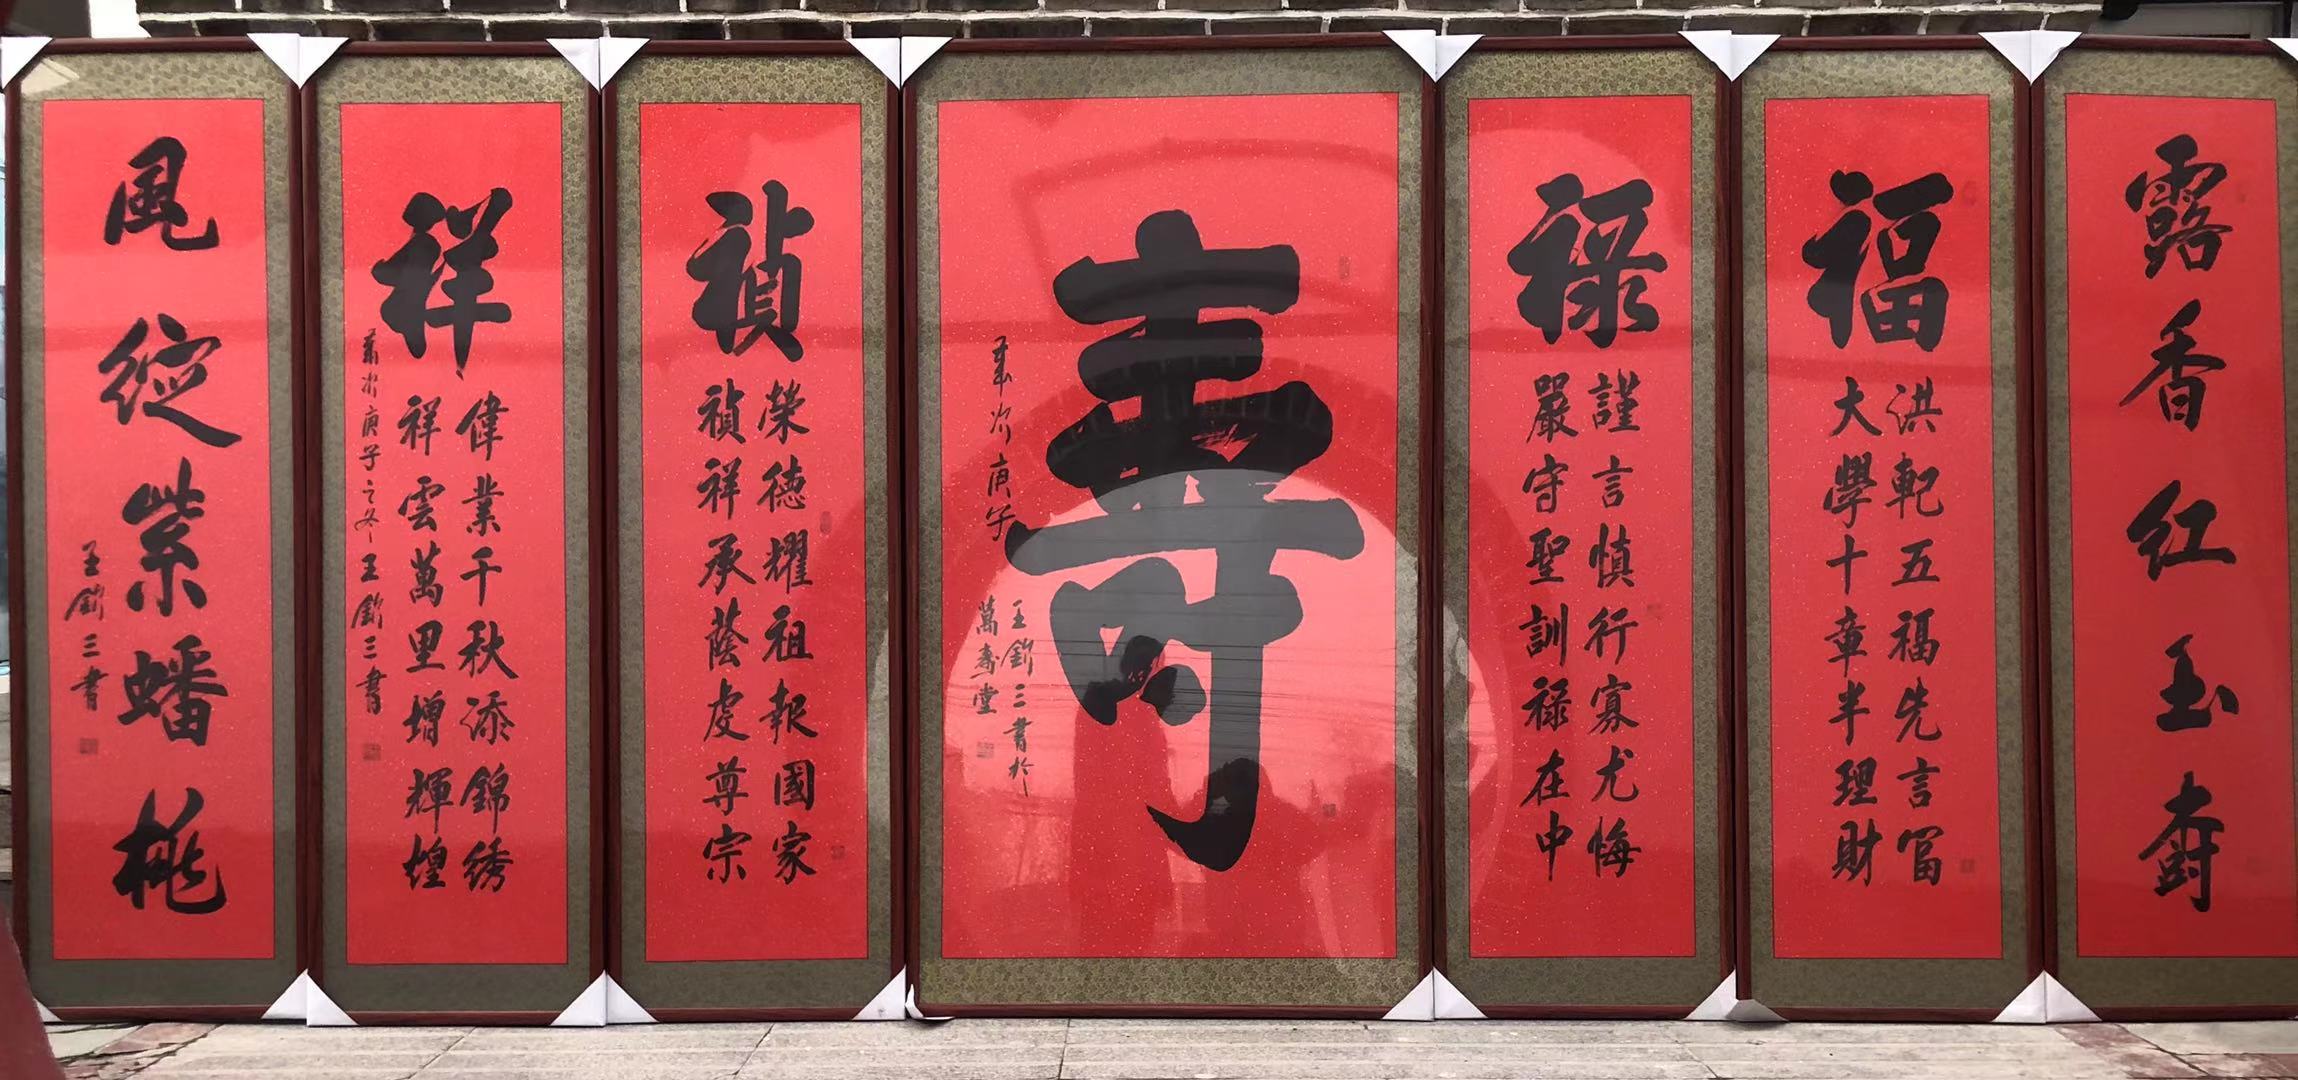 露香红玉樹
福
洪軓五福先言冨
大學十章半理財
禄
謹言慎行寡尤悔
嚴守聖訓禄在中
壽
歲次庚子
王欽三書於
萬壽堂
禎
榮德耀祖報國家
禎祥承蔭虔尊宗
祥
偉業千秋添錦绣
祥雲萬里增輝煌
歲次庚子之冬王欽三書
風綻紫蟠桃
王欽三書